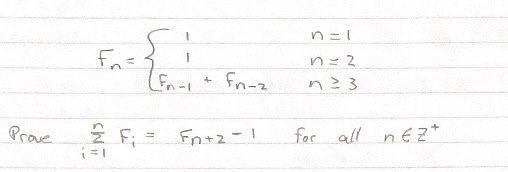 F_n = { 1 n = 1
1 n = 2
F_{n-1} + F_{n-2} n ≥ 3
Prove \sum_{i=1}^{n} F_i = F_{n+2} - 1 for all n ∈ Z^+